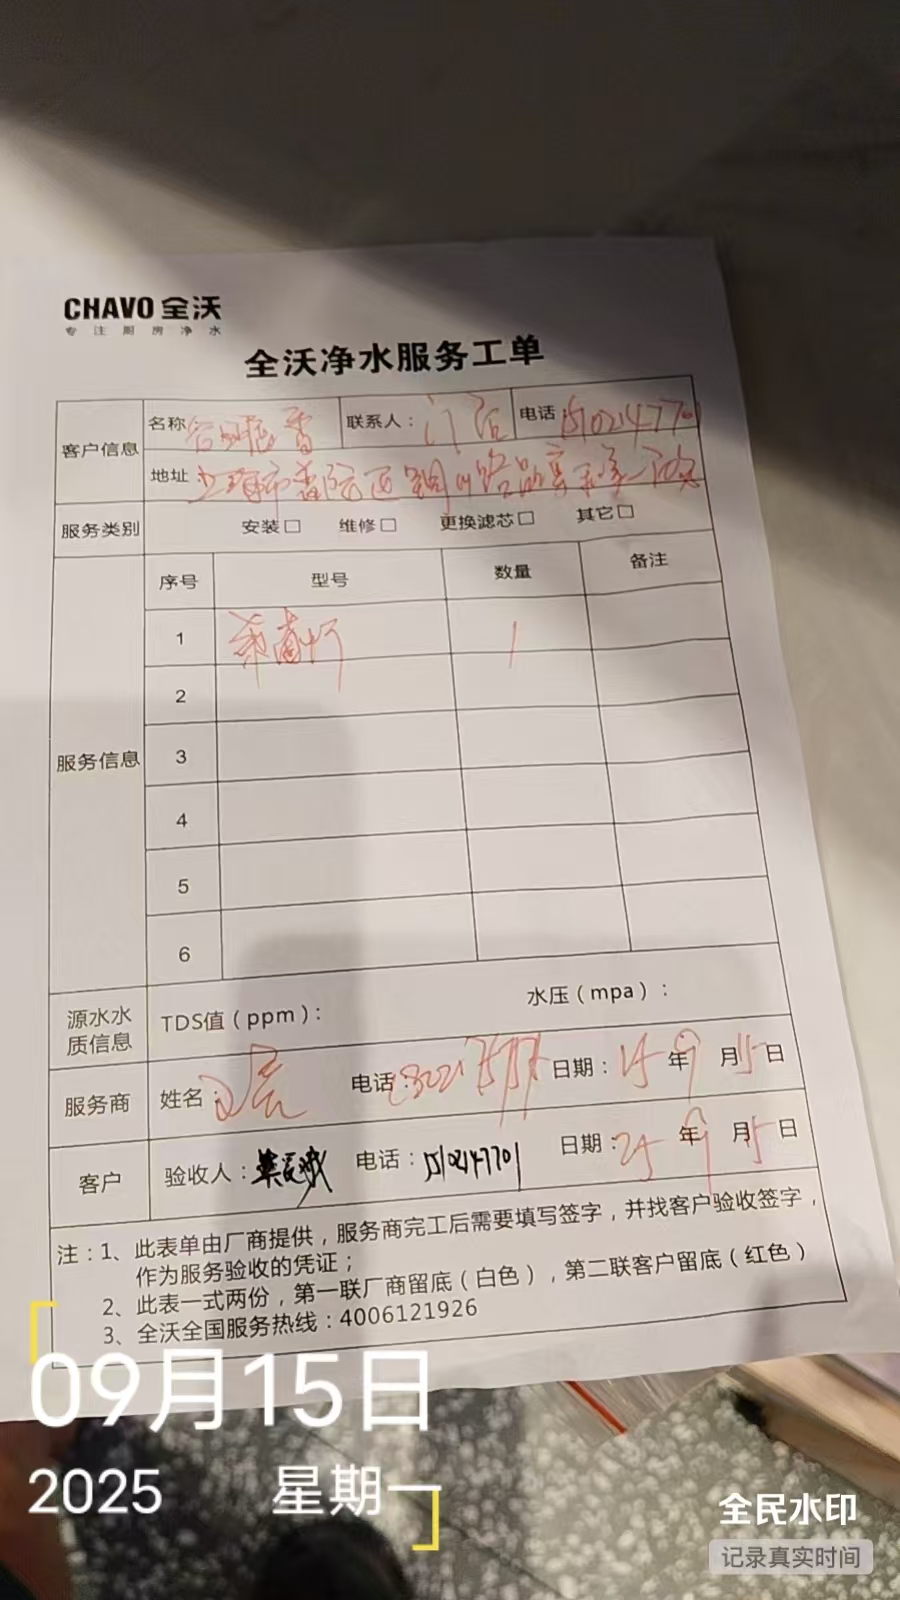 CHAVO 全沃
专注厨房净水
全沃净水服务工单
客户信息 名称 联系人： 门店 电话
地址 上海市普陀区铜川路品
服务类别 安装□ 维修□ 更换滤芯□ 其它□
服务信息 序号 型号 数量 备注
1 杀菌灯 1
2
3
4
5
6
源水水质信息 TDS值（ppm）： 水压（mpa）：
服务商 姓名： 电话： 日期： 25 年 9 月 15 日
客户 验收人： 电话：15102147701 日期： 25 年 9 月 15 日
注：1、此表单由厂商提供，服务商完工后需要填写签字，并找客户验收签字，
作为服务验收的凭证；
2、此表一式两份，第一联厂商留底（白色），第二联客户留底（红色）
3、全沃全国服务热线：4006121926
09月15日
2025 星期一
全民水印
记录真实时间